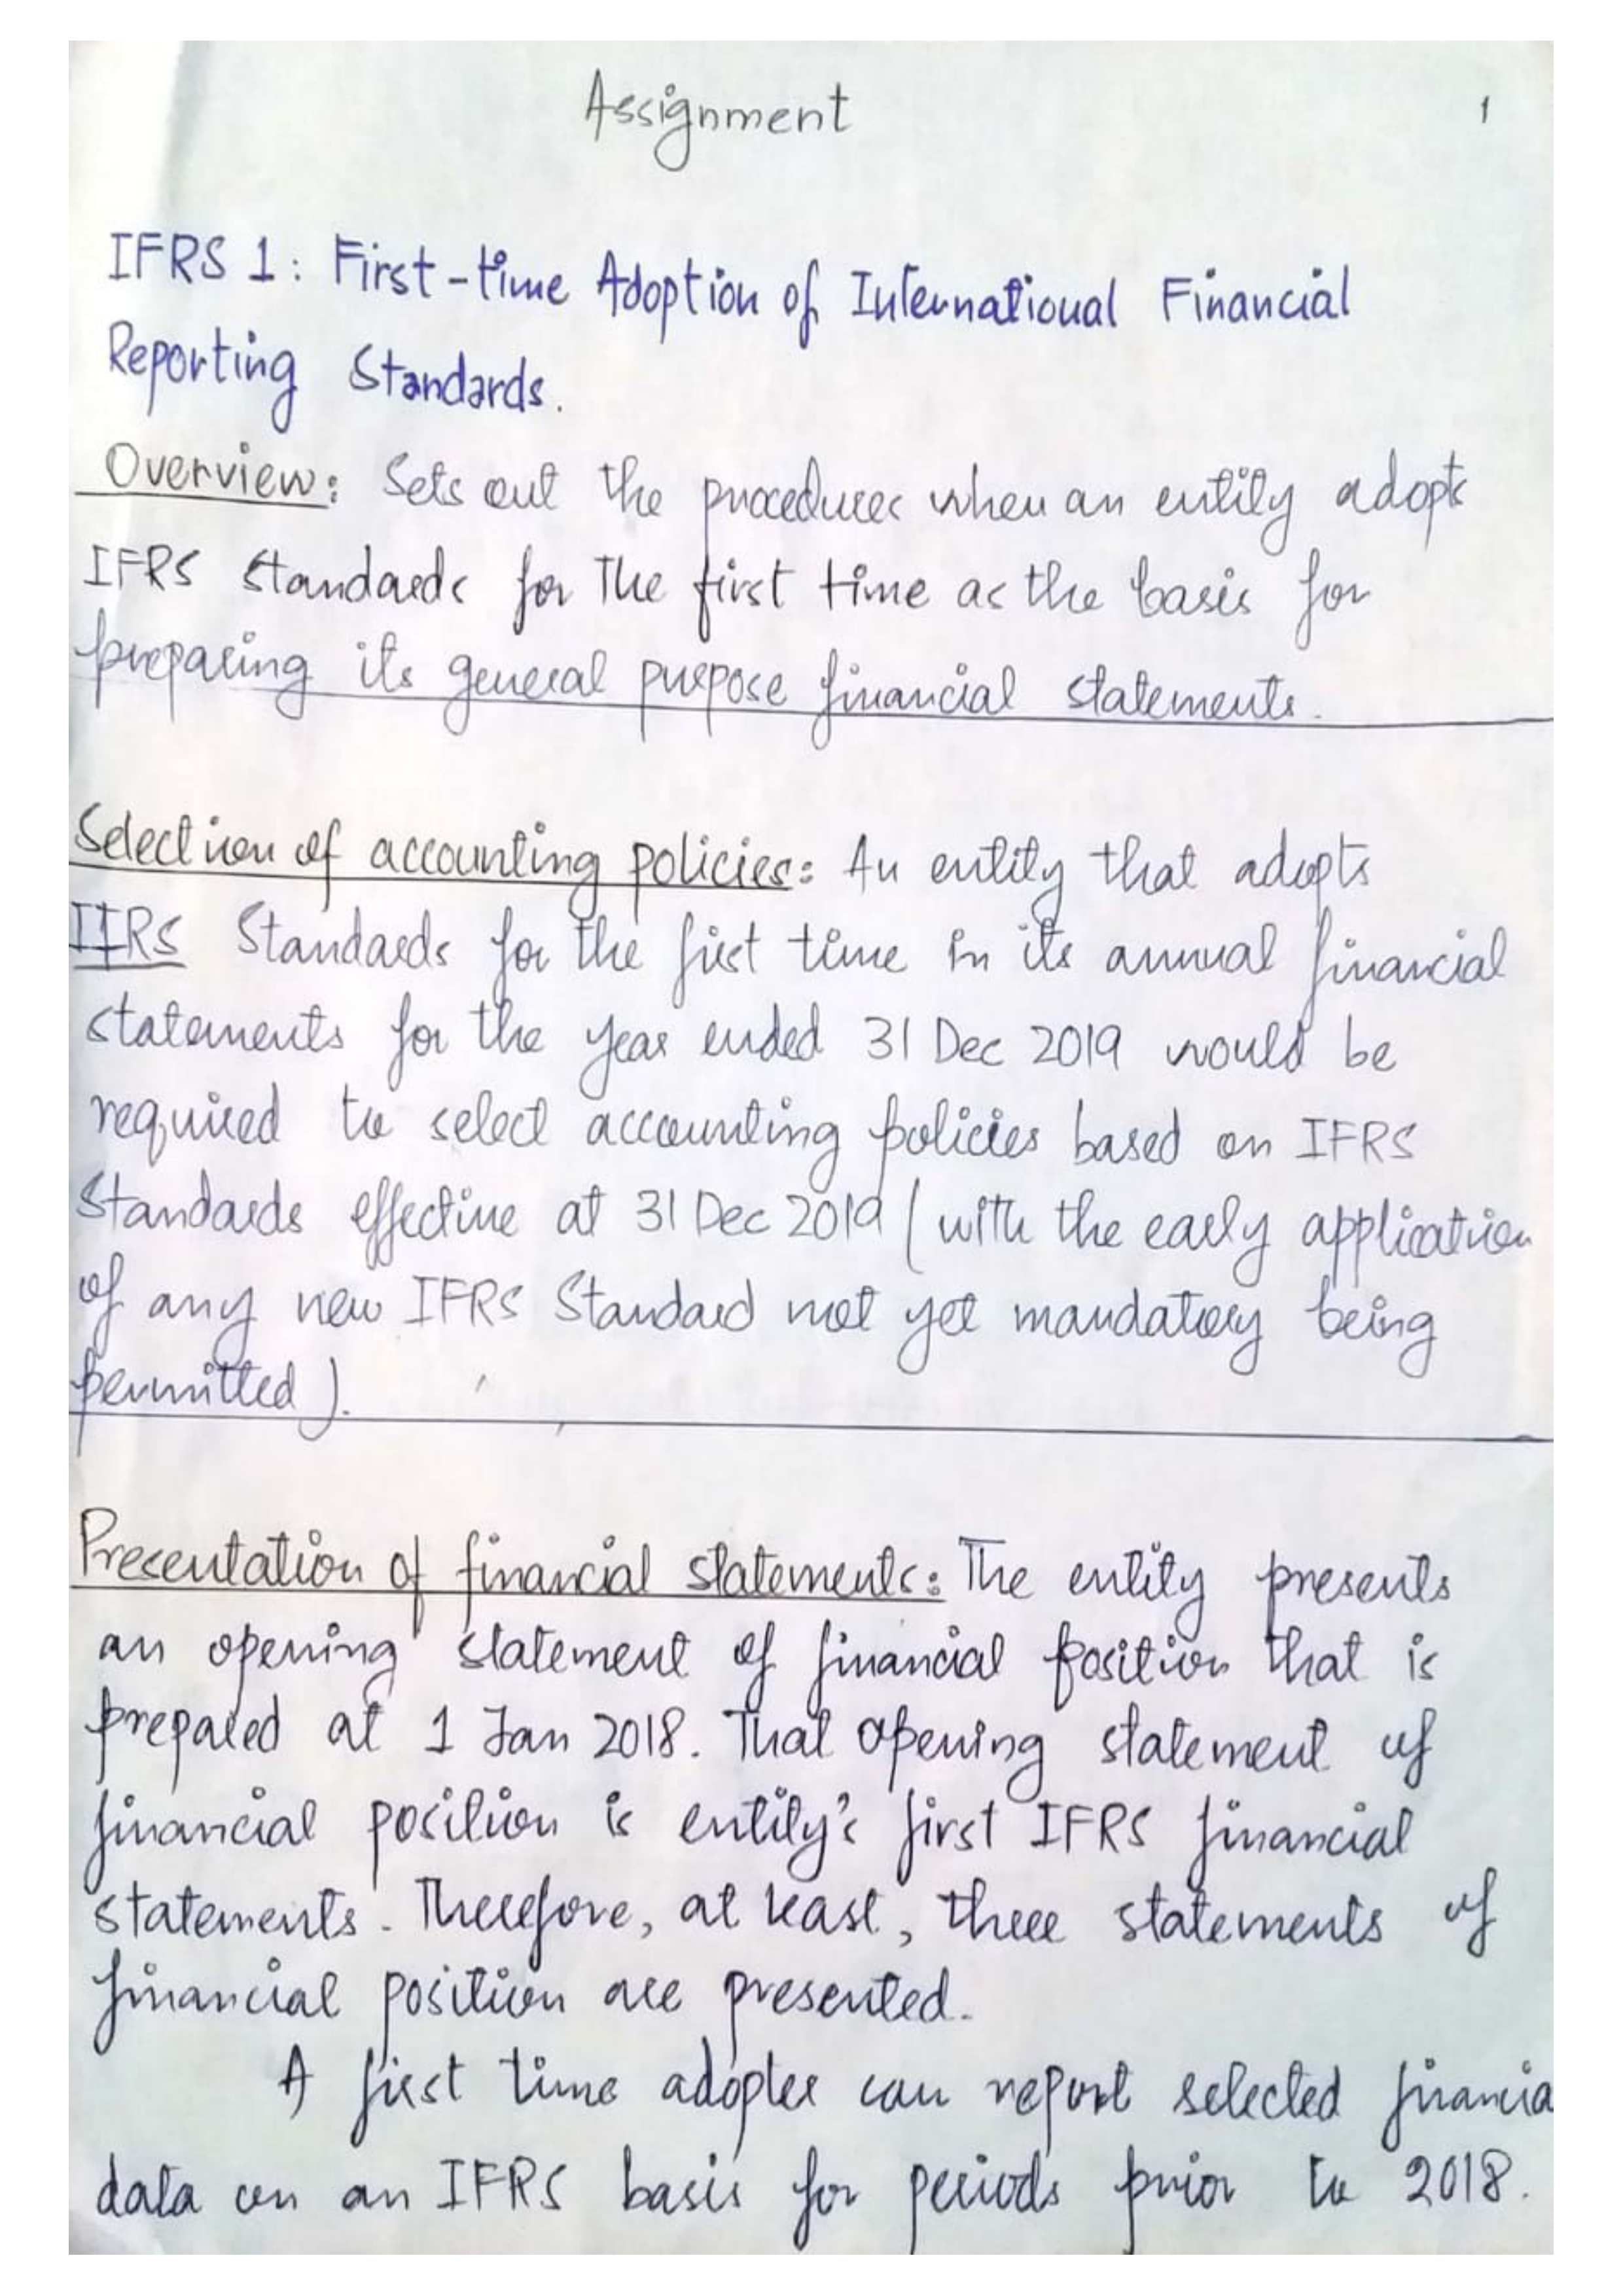 Assignment
1
IFRS 1: First-time Adoption of International Financial
Reporting Standards.
Overview: Sets out the procedures when an entity adopts
IFRS Standards for The first time as the basis for
preparing its general purpose financial statements.
Selection of accounting policies: An entity that adopts
IFRS Standards for the first time in its annual financial
statements for the year ended 31 Dec 2019 would be
required to select accounting policies based on IFRS
Standards effective at 31 Dec 2019 (with the early application
of any new IFRS Standard not yet mandatory being
permitted).
Presentation of financial statements: The entity presents
an opening statement of financial position that is
prepared at 1 Jan 2018. That opening statement of
financial position is entity's first IFRS financial
statements. Therefore, at least, three statements of
financial position are presented.
A first time adopter can report selected financia
data on an IFRS basis for periods prior to 2018.